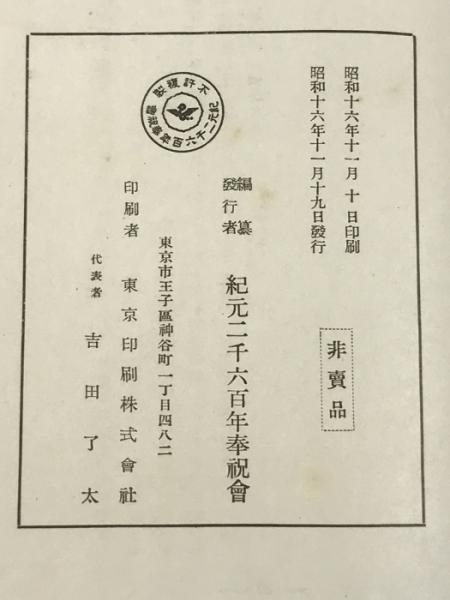 昭和十六年十一月 十 日印刷
昭和十六年十一月十九日發行
非賣品
編纂
發行者
紀元二千六百年奉祝會
東京市王子區神谷町一丁目四八二
印刷者 東京印刷株式會社
代表者 吉田了太
不許複製
紀元二千六百年奉祝會